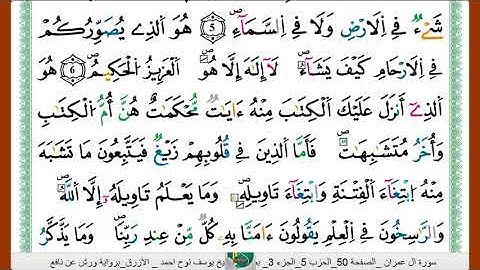 شَےْءٞ فِے اِ۬لَارْضِ وَلَا فِے اِ۬لسَّمَآءِۖ 5 هُوَ اَ۬لذِے يُصَوِّرُكُمْ
فِے اِ۬لَارْحَامِ كَيْفَ يَشَآءُۖ لَآ إِلَٰهَ إِلَّا هُوَ اَ۬لْعَزِيزُ اُ۬لْحَكِيمُۖ 6 هُوَ
اَ۬لذِےٓ أَنزَلَ عَلَيْكَ اَ۬لْكِتَٰبَ مِنْهُ ءَايَٰتٞ مُّحْكَمَٰتٌ هُنَّ أُمُّ اُ۬لْكِتَٰبِ
وَأُخَرُ مُتَشَٰبِهَٰتٞۖ فَأَمَّا اَ۬لذِينَ فِے قُلُوبِهِمْ زَيْغٞ فَيَتَّبِعُونَ مَا تَشَٰبَهَ
مِنْهُ اُ۪بْتِغَآءَ اَ۬لْفِتْنَةِ وَابْتِغَآءَ تَاوِيلِهِۦۖ وَمَا يَعْلَمُ تَاوِيلَهُۥٓ إِلَّا اَ۬للَّهُۖ
وَالرَّٰسِخُونَ فِے اِ۬لْعِلْمِ يَقُولُونَ ءَامَنَّا بِهِۦ كُلّٞ مِّنْ عِندِ رَبِّنَاۖ وَمَا يَذَّكَّرُ
سورة ال عمران _ الصفحة 50_الحزب 5_الجزء 3_ يخ يوسف نوح احمد _ الأزرق_برواية ورش عن نافع